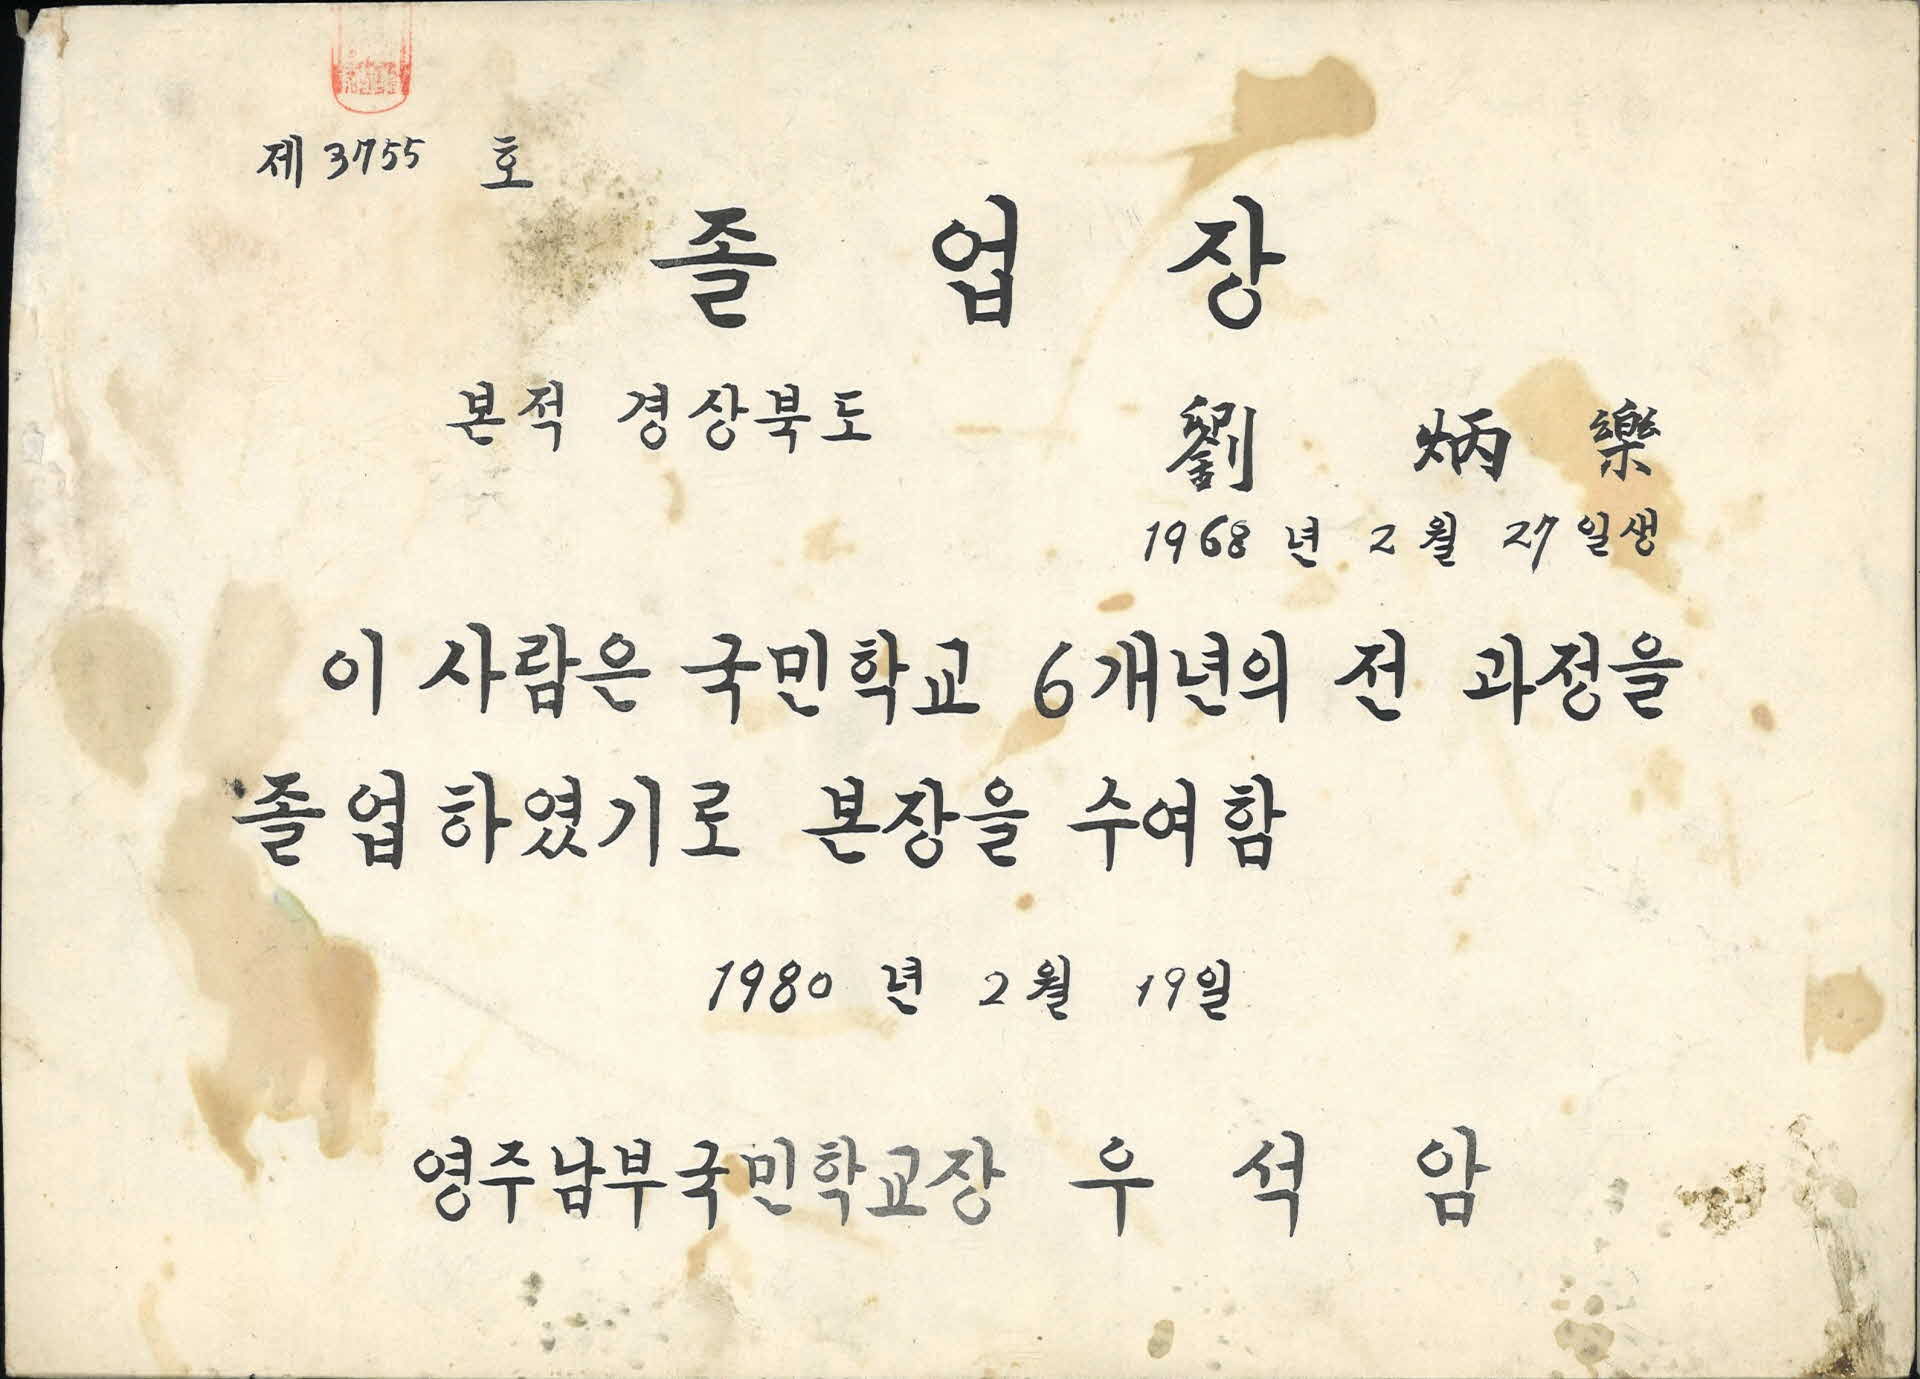 제 3755 호
졸 업 장
본적 경상북도
劉 炳 樂
1968 년 2 월 27 일생
이 사람은 국민학교 6개년의 전 과정을
졸업하였기로 본장을 수여함
1980 년 2 월 19일
영주남부국민학교장 우 석 암